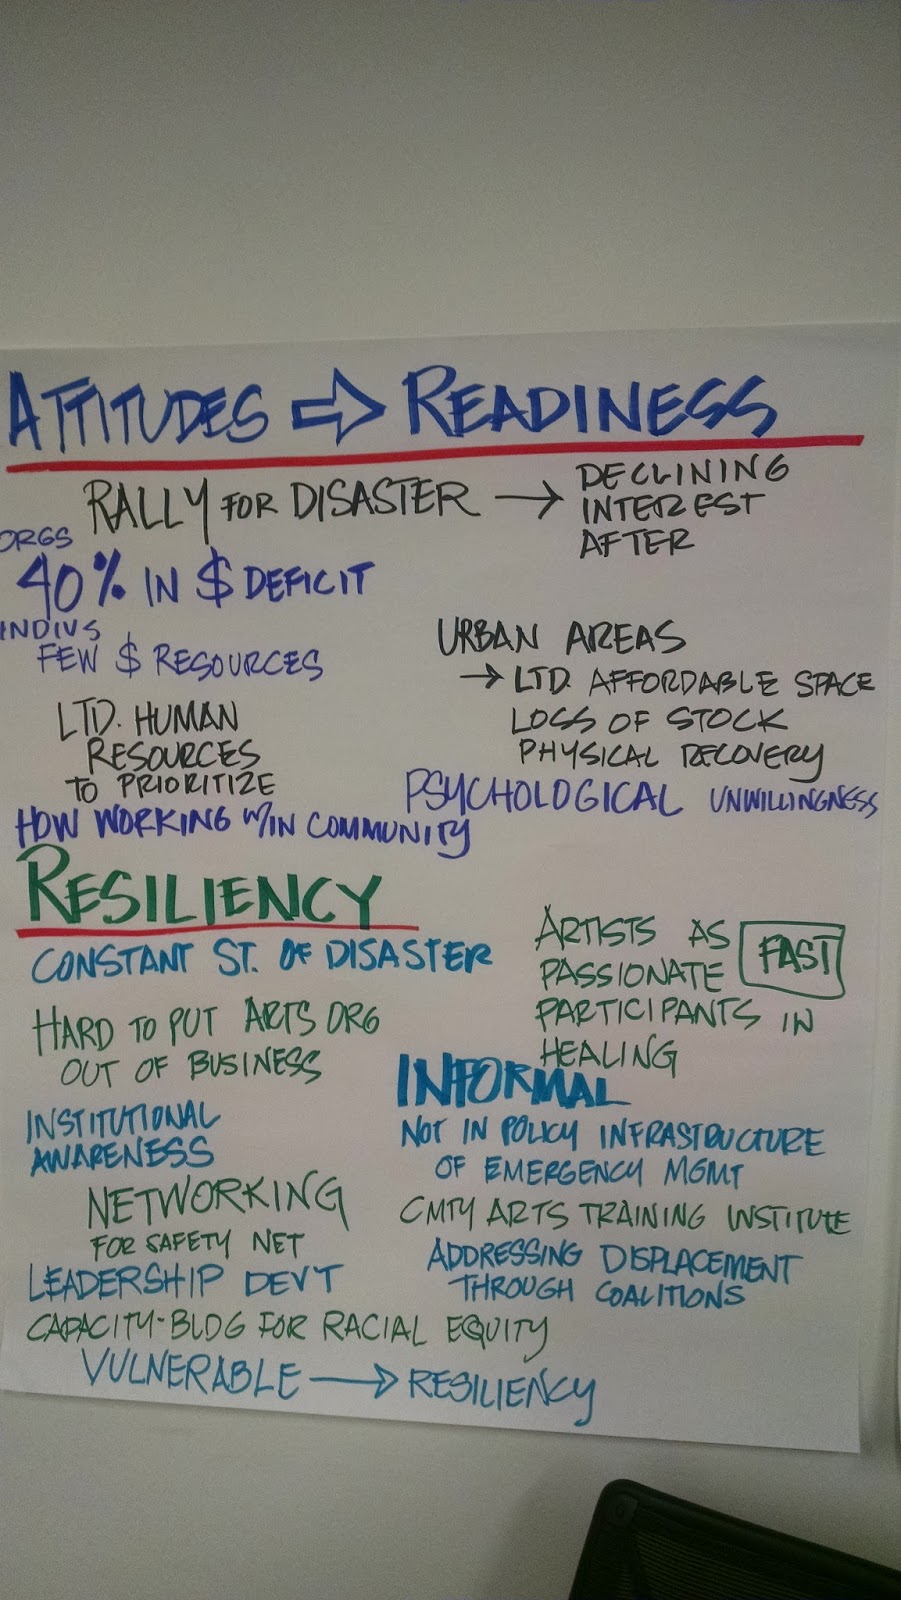 ATTITUDES ⇨ READINESS
RALLY FOR DISASTER → DECLINING
INTEREST
AFTER
ORGS
40% IN $ DEFICIT
INDIVS
FEW $ RESOURCES
LTD. HUMAN
RESOURCES
TO PRIORITIZE
HOW WORKING W/IN COMMUNITY
URBAN AREAS
→ LTD. AFFORDABLE SPACE
LOSS OF STOCK
PHYSICAL RECOVERY
PSYCHOLOGICAL UNWILLINGNESS
RESILIENCY
CONSTANT ST. OF DISASTER
HARD TO PUT ARTS ORG
OUT OF BUSINESS
INSTITUTIONAL
AWARENESS
NETWORKING
FOR SAFETY NET
LEADERSHIP DEV'T
CAPACITY-BLDG FOR RACIAL EQUITY
VULNERABLE → RESILIENCY
ARTISTS AS
PASSIONATE
PARTICIPANTS IN
HEALING
FAST
INFORMAL
NOT IN POLICY INFRASTRUCTURE
OF EMERGENCY MGMT
CMTY ARTS TRAINING INSTITUTE
ADDRESSING DISPLACEMENT
THROUGH COALITIONS